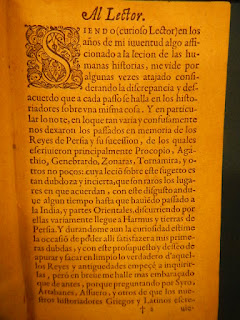 Al Lector.
SIENDO (curioso Lector) en los
años de mi iuuentud algo affi-
cionado a la lecion de las hu-
manas historias, me vide por
algunas vezes atajado consi-
derando la discrepancia y des-
acuerdo que a cada passo se halla en los his-
toriadores sobre vna misma cosa. Y en particu-
lar lo note, en loque tan varia y confusamente
nos dexaron los passados en memoria de los
Reyes de Persia y su sucession, de los quales
escriuieron principalmente Procopio, Aga-
thio, Genebrardo, Zonaras, Tornamira, y o-
tros no pocos: cuya leció sobre este sugetto es
tan dubdoza y incierta, que son raros los luga-
res en que acuerdan, con este disgusto andu-
ue algun tiempo hasta que hauiēdo passado a
la India, y partes Orientales, discurriendo por
ellas variamente llegue a Harmus y tierras de
Persia. Y durandome aun la curiosidad estimē
la occasió de poder alli satisfazer a mis prime-
ras dubdas, y con este prosupuesto y desseo de
apurar y sacar en limpio lo verdadero d'aquel-
los Reyes y antiguedades empecé a inquirir-
las, però en breue me halle mas embaraçado
que de antes, porque preguntando por Syro,
Artabanes, Assuero, y ottros de que los nue-
stros historiadores Griegos y Latinos escre-
† 2 uie-